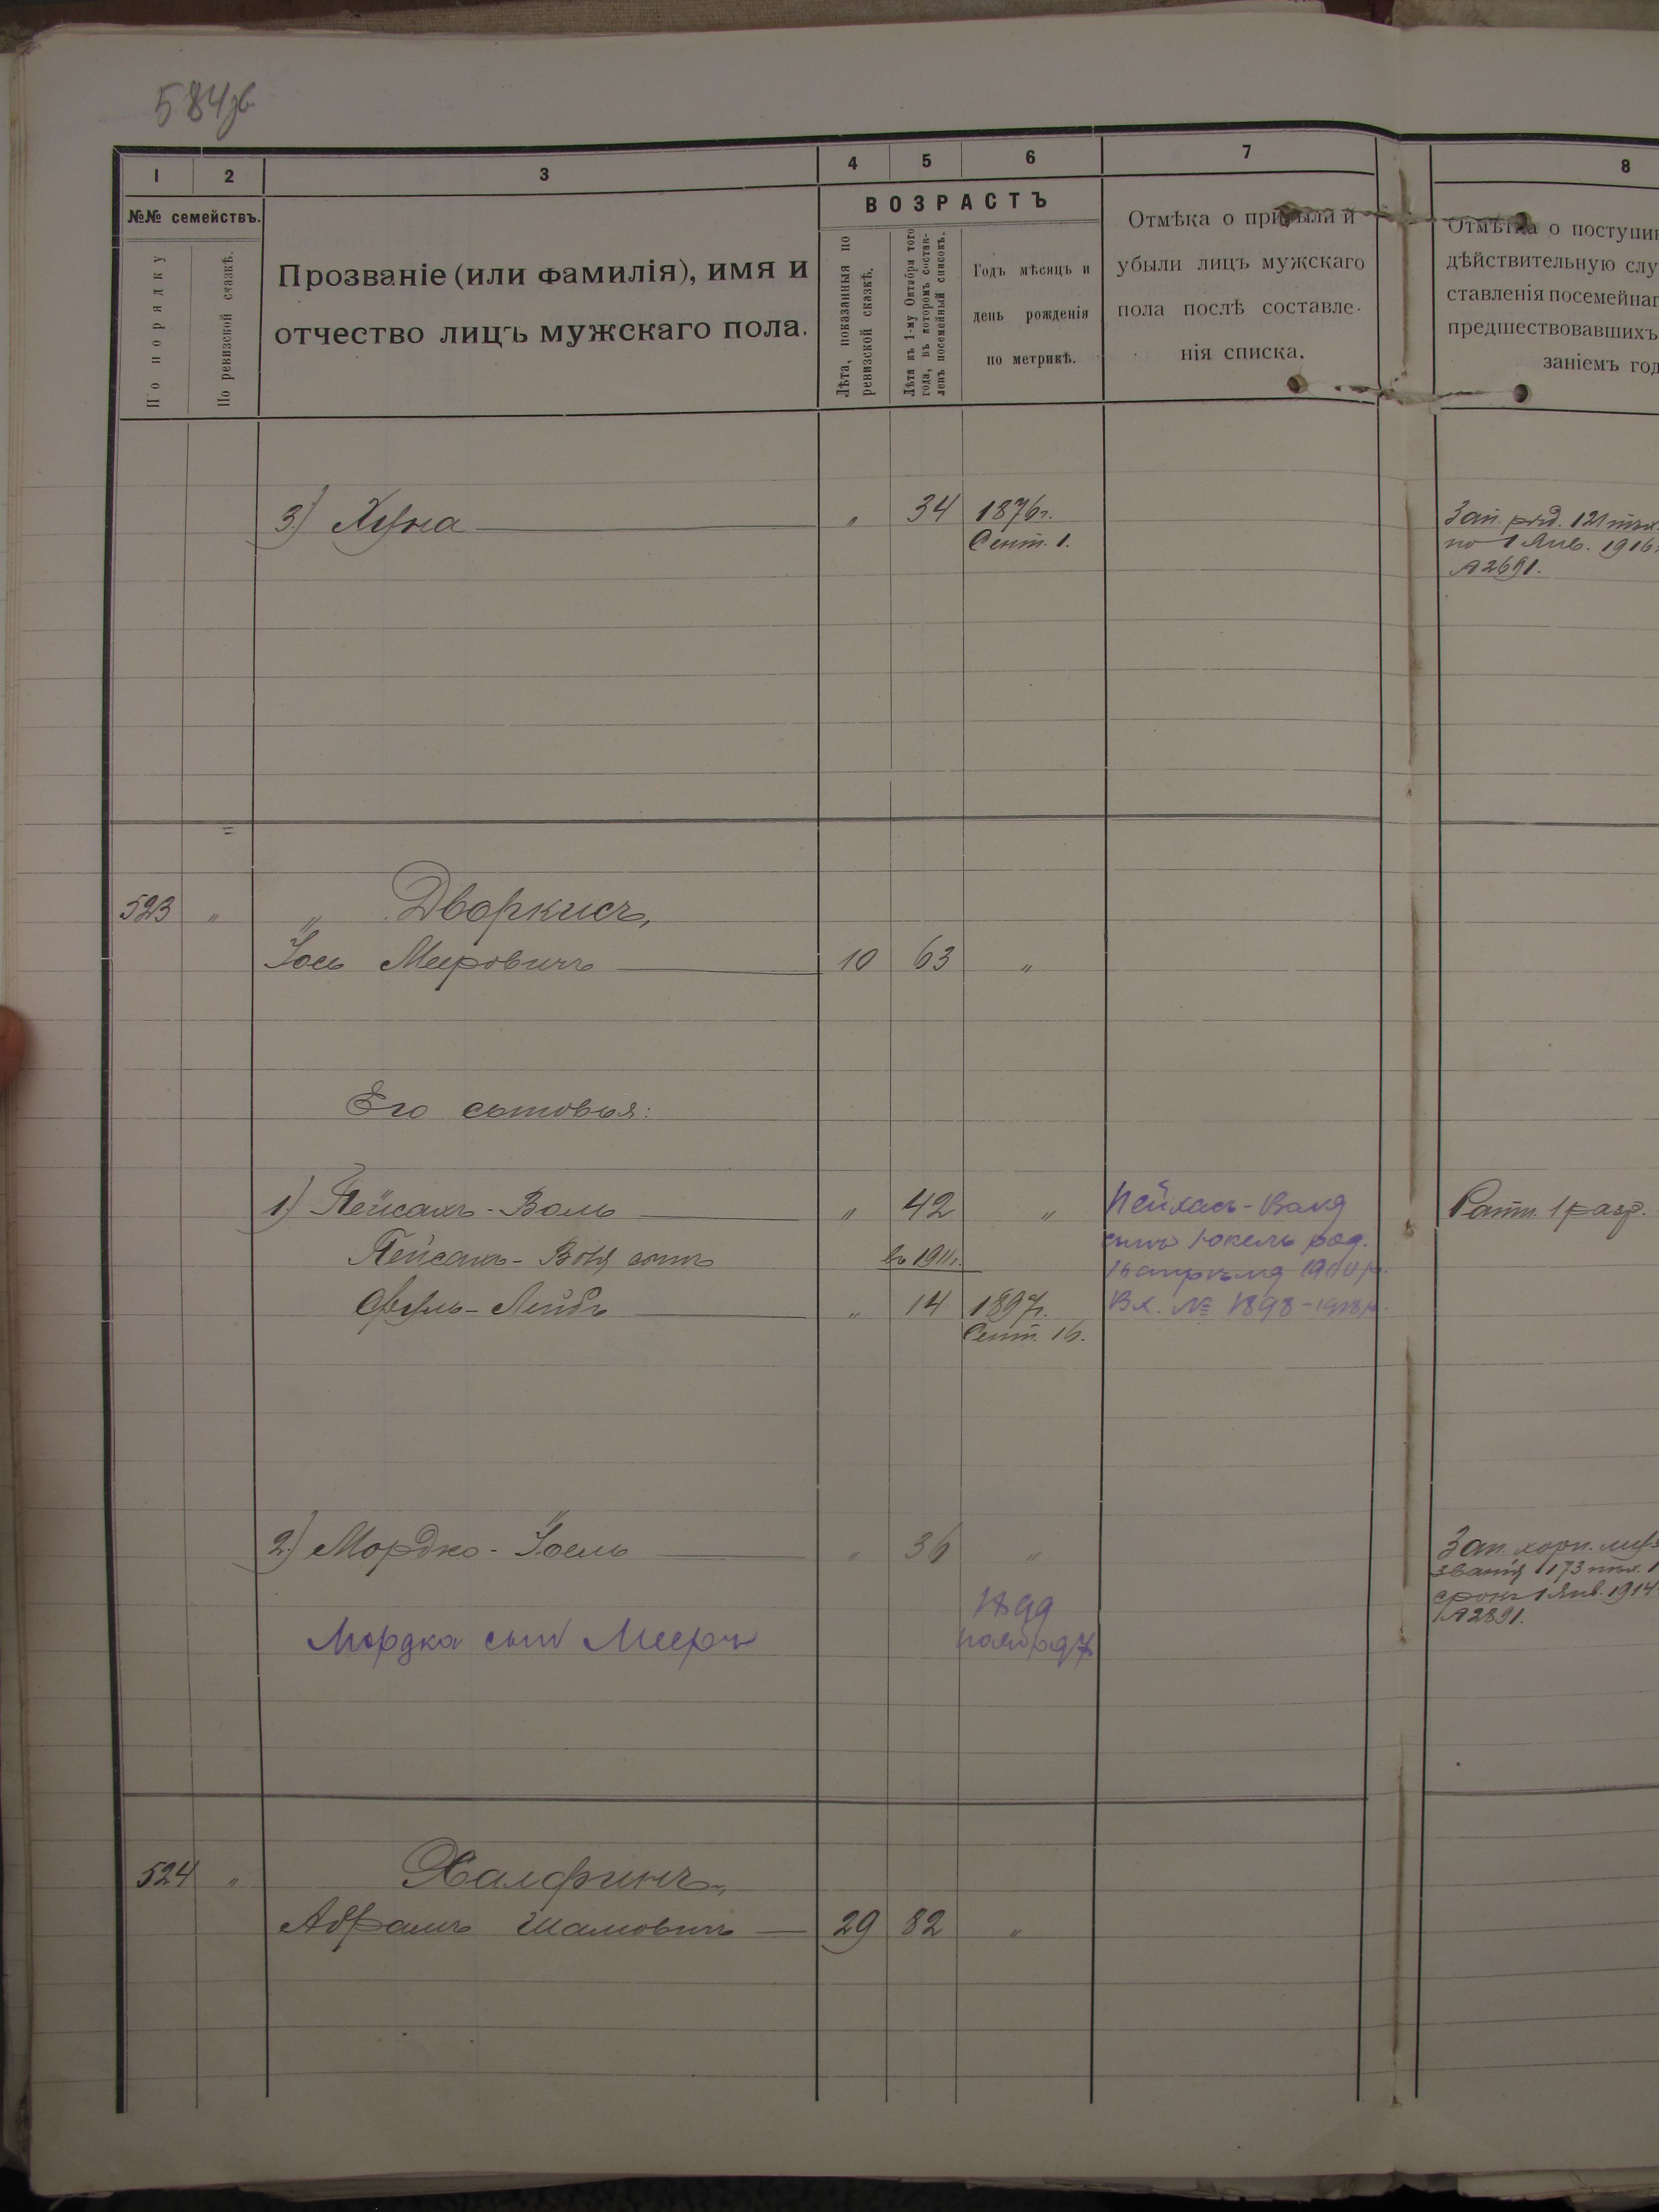 584об
1 2 3 4 5 6 7 8
№№ семействъ.
По порядку
По ревизской сказкѣ.
Прозваніе (или фамилія), имя и
отчество лицъ мужскаго пола.
ВОЗРАСТЪ
Лѣта, показанныя по
ревизской сказкѣ.
Лѣта къ 1-му Октября того
года, въ которомъ состав-
ленъ посемейный списокъ.
Годъ мѣсяцъ и
день рожденія
по метрикѣ.
Отмѣка о прибыли и
убыли лицъ мужскаго
пола послѣ составле-
нія списка.
Отмѣтка о поступи
дѣйствительную слу
ставленія посемейнаг
предшествовавшихъ
заніемъ год
3.) Хуна " 34 1876г.
Сент. 1.
Зап. ряд. 121
по 1 Янв. 1916
А2691.
523 " " Дворкисъ,
Іось Мееровичъ 10 63 "
Его сыновья:
1.) Пейсахъ-Воль " 42 "
Пейсахъ- сынъ въ 1911г.
-Лейбъ " 14 1897г.
Сент. 16.
сынъ Юкель род.
Вх. № 1898-
Ратн. 1 разр.
2.) Мордхо-Іоель " 36 "
Зап. хорн. муз
званія 173
срокъ 1 Янв. 1914
А2891.
Мордка сын Меера
524 " Халфинъ,
Абрамъ Шамовичъ 29 82 "